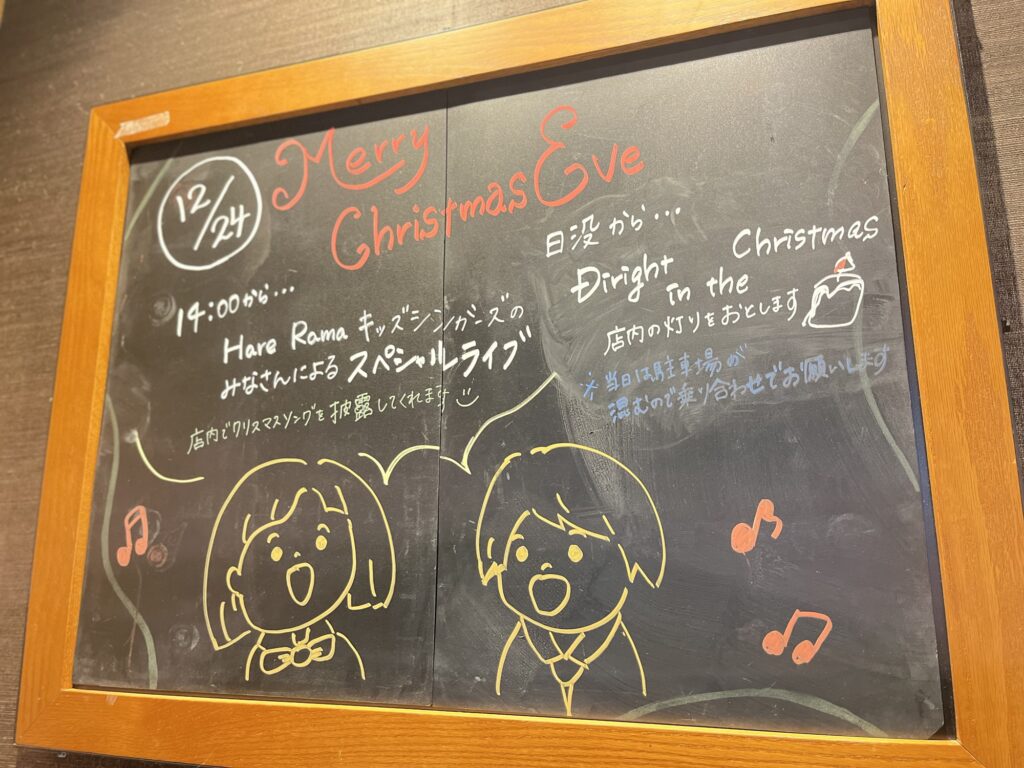 12/24
Merry
Christmas Eve
14:00から...
Hare Rama キッズシンガーズの
みなさんによる スペシャルライブ
店内でクリスマスソングを披露してくれます
日没から...
Diright Christmas
in the
店内の灯りをおとします
※当日は駐車場が
混むので乗り合わせでお願いします